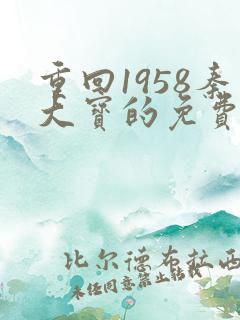 重回1958秦
大宝的免费
比尔德布拉西
未经同意禁止转载